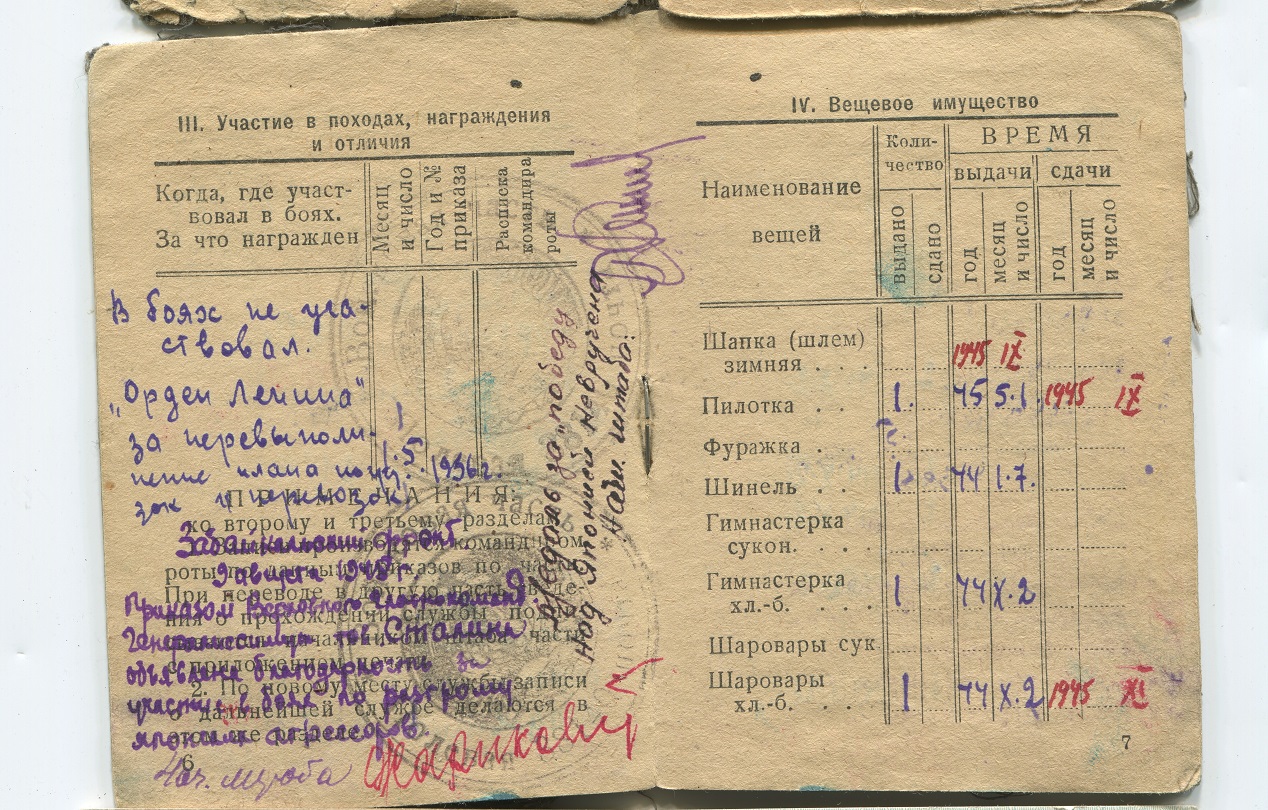 III. Участие в походах, награждения
и отличия
Когда, где участ-
вовал в боях.
За что награжден
Месяц
и число
Год и №
приказа
Расписка
командира
роты
В боях не уча-
ствовал.
„Орден Ленина"
за перевыполн-
нение плана
1.5. 1936г.
зок и перевозок
ПРИМЕЧАНИЯ:
ко второму и третьему разделам
Забайкальский фронт
роты по данным приказов по части
9 августа 1945г
При переводе в другую часть сведе-
Приказом Верховного
ния о прохождении службы подпи-
Генералиссимуса тов Сталина
начальником штаба части
с приложением печати.
объявлена благодарность за
2. По новому месту службы записи
участие в боях по разгрому
о дальнейшей службе делаются в
японских агрессоров
этом же разделе.
6
Нач. штаба
медаль за „победу
над Японией не вручена
Нач. штаба:
IV. Вещевое имущество
Наименование
вещей
Коли-
чество
ВРЕМЯ
выдачи
сдачи
выдано
сдано
год
месяц
и число
год
месяц
и число
Шапка (шлем)
зимняя . . . 1945 IX
Пилотка . . 1. 45 5.1. 1945 IX
Фуражка . .
Шинель . . 1 44 1.7.
Гимнастерка
сукон. . . .
Гимнастерка
хл.-б. . . . 1 44 X.2
Шаровары сук.
Шаровары
хл.-б. . . . 1 44 X.2 1945 XI
7